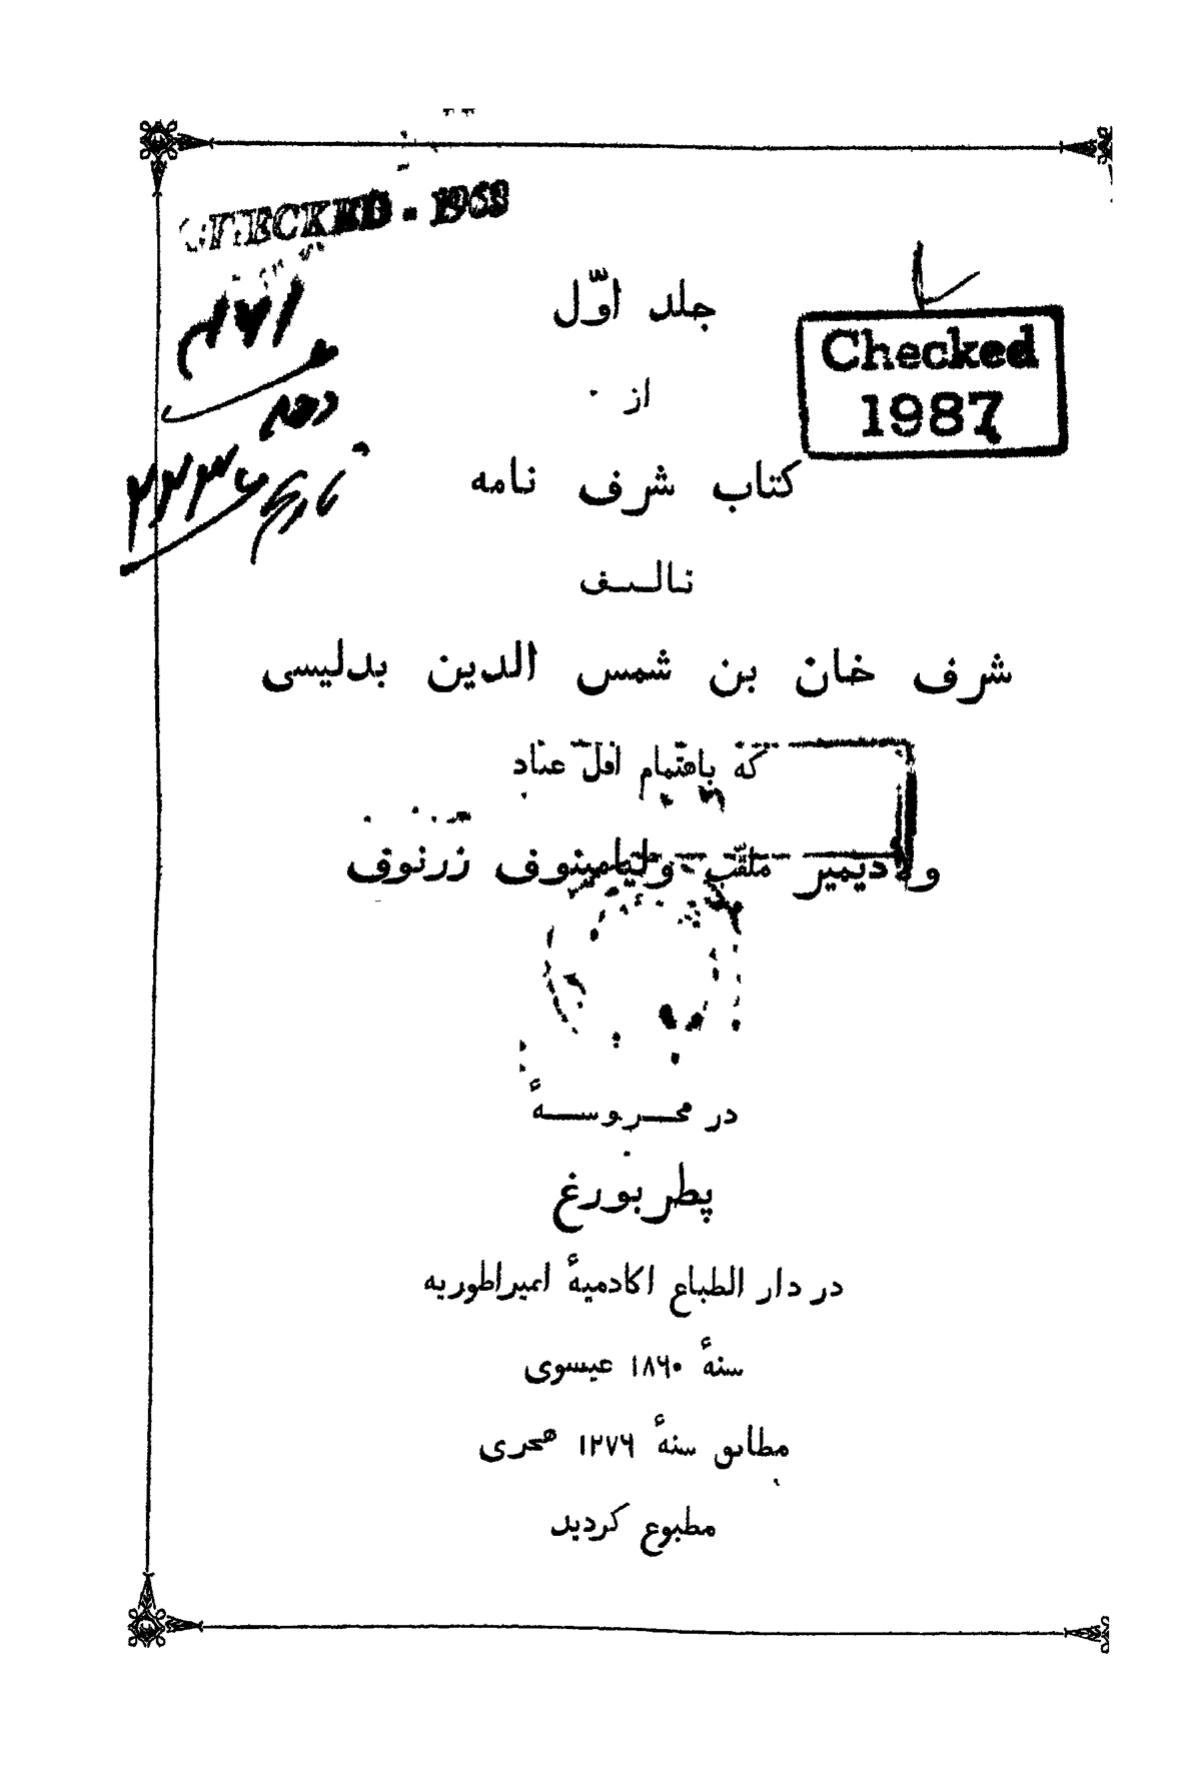 CHECKED - 1963
جلد اوّل
Checked
1987
از
کتاب شرف نامه
تاریخ
تالیف
شرف خان بن شمس الدین بدلیسی
که باهتمام اقلّ عباد
ولادیمیر ملقّب ولیامینوف زرنوف
در محروسهٔ
پطربورغ
در دار الطباع اکادمیهٔ امپراطوریه
سنهٔ ۱۸۶۰ عیسوی
مطابق سنهٔ ۱۲۷۶ هجری
مطبوع کردید